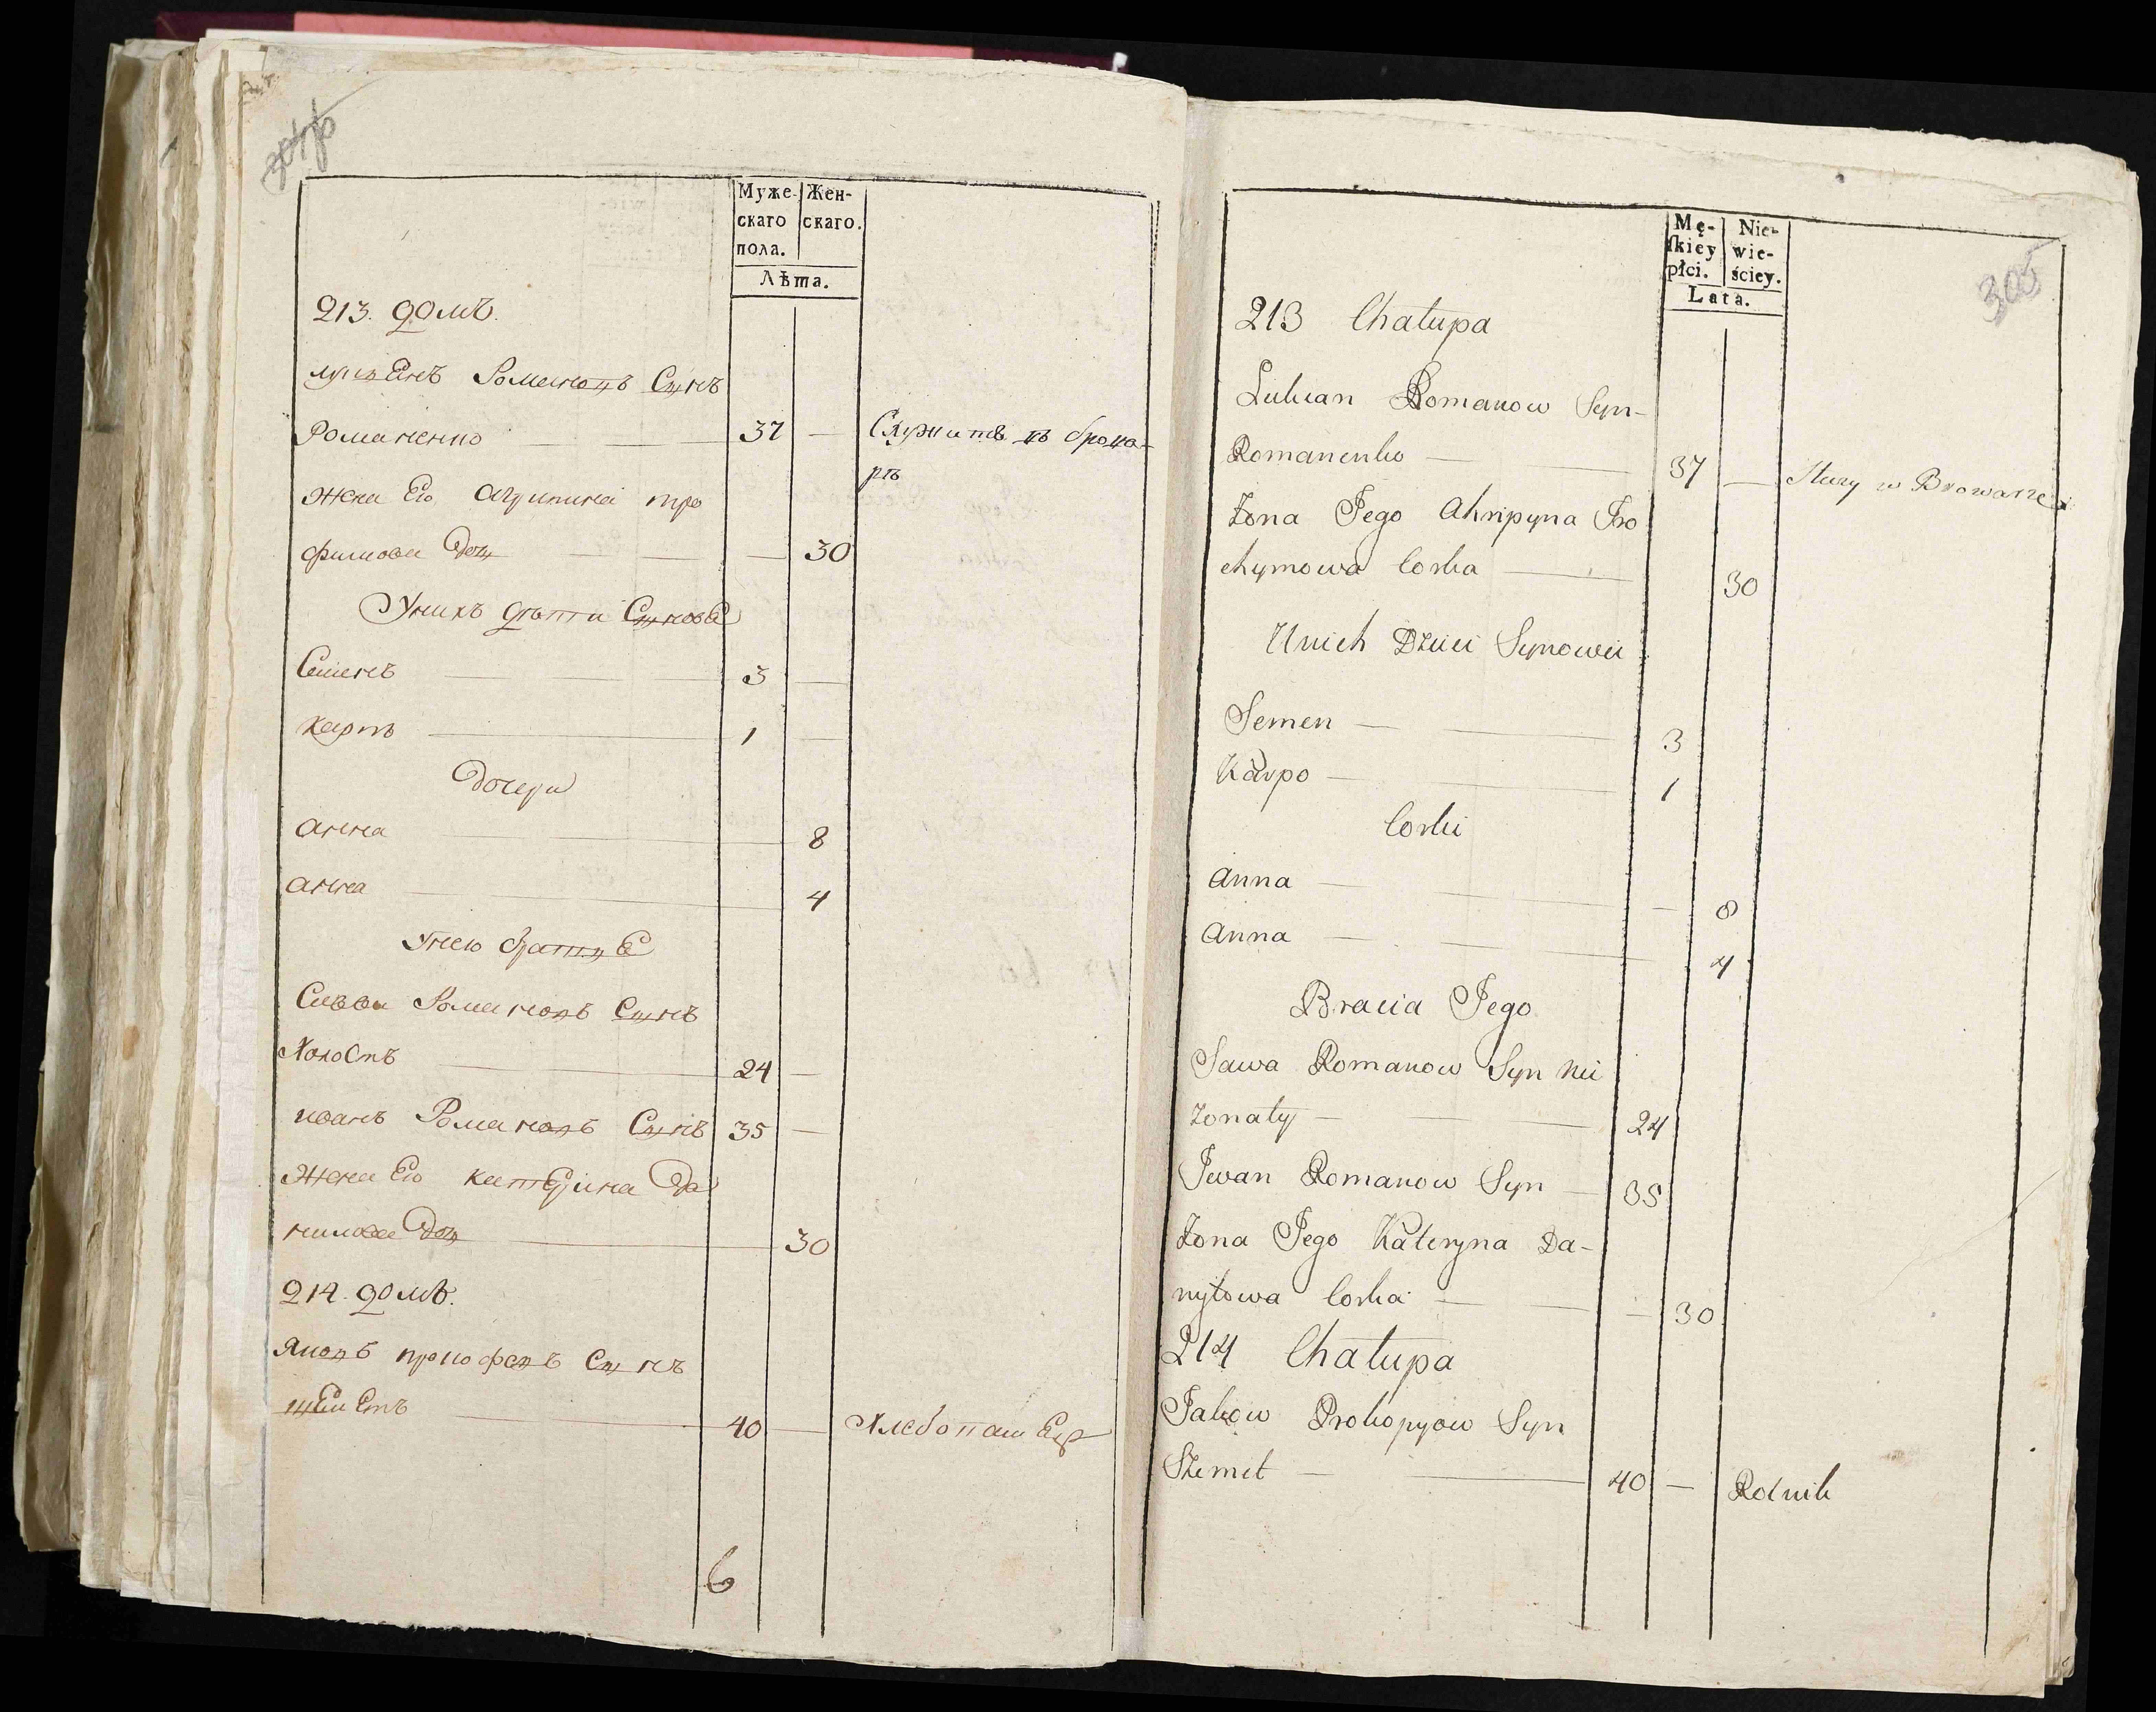 304об
Муже-
скаго
пола.
Жен-
скаго.
Лѣта.
213. домъ.
лукьЯнъ Романовъ Сынъ
Романенко — — 37 — Служитъ въ брова-
рѣ
Жена Его Агрипина тро
фимова Дочь — — — 30
Унихъ дѣти СыновЯ
Семенъ — — — 3 —
Карпъ — 1 —
Дочери
Анна — 8
Анна — 4
Унего братьЯ
Савва Романовъ Сынъ
Холостъ — 24 —
иванъ Романовъ Сынъ 35 —
Жена Его катерина Да
нилова Дочь — 30
214. домъ.
Яковъ прокофевъ Сынъ
шеметь — 40 — Хлебопашецъ
6
305
Mę-
ſkiey
płci.
Nie-
wie-
ściey.
Lata.
213 Chałupa
Lukian Romanow Syn-
Romanenko — — 37 — Służy w Browarze
Żona Jego Ahripyna Tro
chymowa Corka — 30
Unich Dzieci Synowie
Semen — — 3
Karpo — — 1
Corki
Anna — — — 8
Anna — — 4
Bracia Jego
Sawa Romanow Syn Nie
żonaty — — 24
Iwan Romanow Syn — 35
Żona Jego Kateryna Da-
nyłowa Corka — — — 30
214 Chałupa
Jakow Prokopyow Syn
Szemet — — 40 — Rolnik